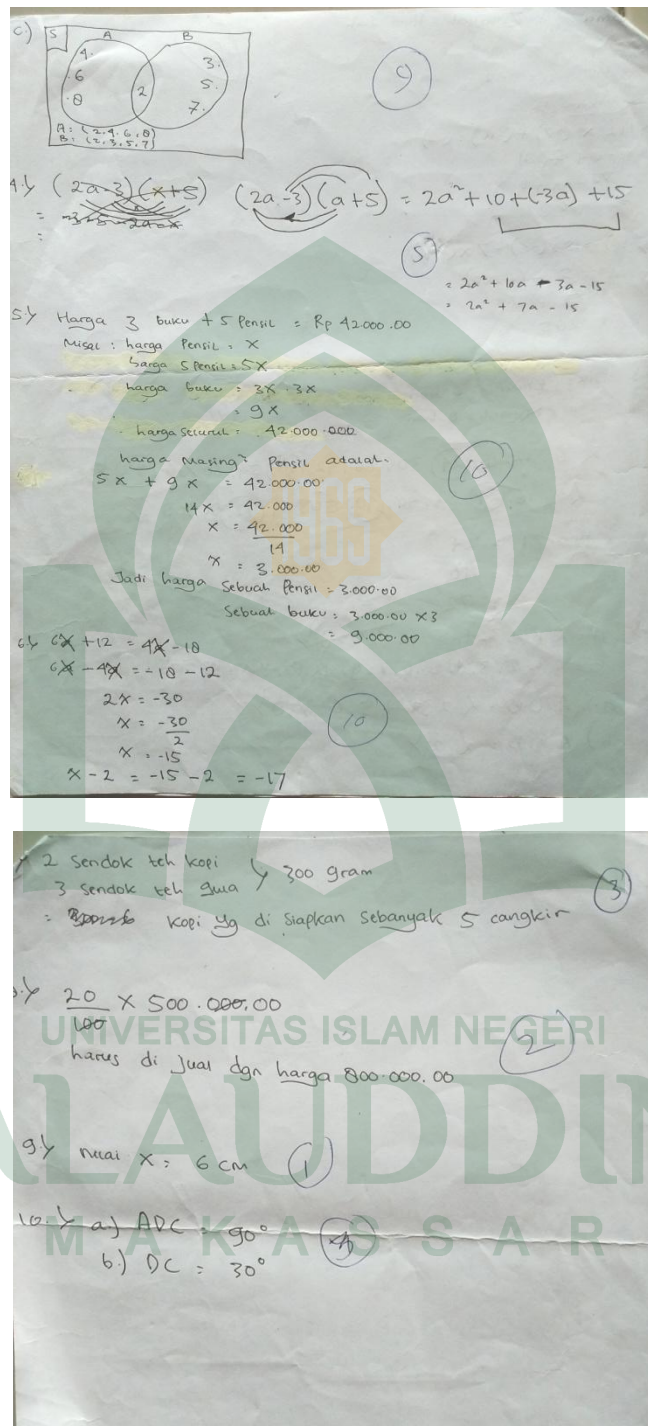 c.) S A B
4. 3.
.6 2 5.
.8 7.
A = {2,4,6,8}
B = {2,3,5,7}
9
4.) (2a-3)(x+5) (2a-3)(a+5) = 2a²+10+(-3a)+15
=
:
5
= 2a²+10a - 3a - 15
= 2a² + 7a - 15
5.) Harga 3 buku + 5 Pensil = Rp 42.000.00
Misal : harga Pensil = x
harga 5 Pensil = 5x
harga buku = 3x . 3x
= 9x
harga Seluruh = 42.000.000
harga Masing² Pensil adalah
5x + 9x = 42.000.00
14x = 42.000
x = 42.000
14
x = 3.000.00
10
Jadi harga Sebuah Pensil = 3.000.00
Sebuah buku = 3.000.00 x3
= 9.000.00
6.) 6x+12 = 4x-18
6x-4x = -18-12
2x = -30
x = -30
2
x = -15
10
x - 2 = -15 - 2 = -17
2 Sendok teh kopi
3 Sendok teh gula
300 gram
3
= kopi yg di siapkan Sebanyak 5 cangkir
20 x 500.000.00
100
2
harus di Jual dgn harga 800.000.00
9.) nilai x = 6 cm
1
10.) a.) ADC = 90°
b.) DC = 30°
1965
UNIVERSITAS ISLAM NEGERI
ALAUDDIN
MAKASSAR